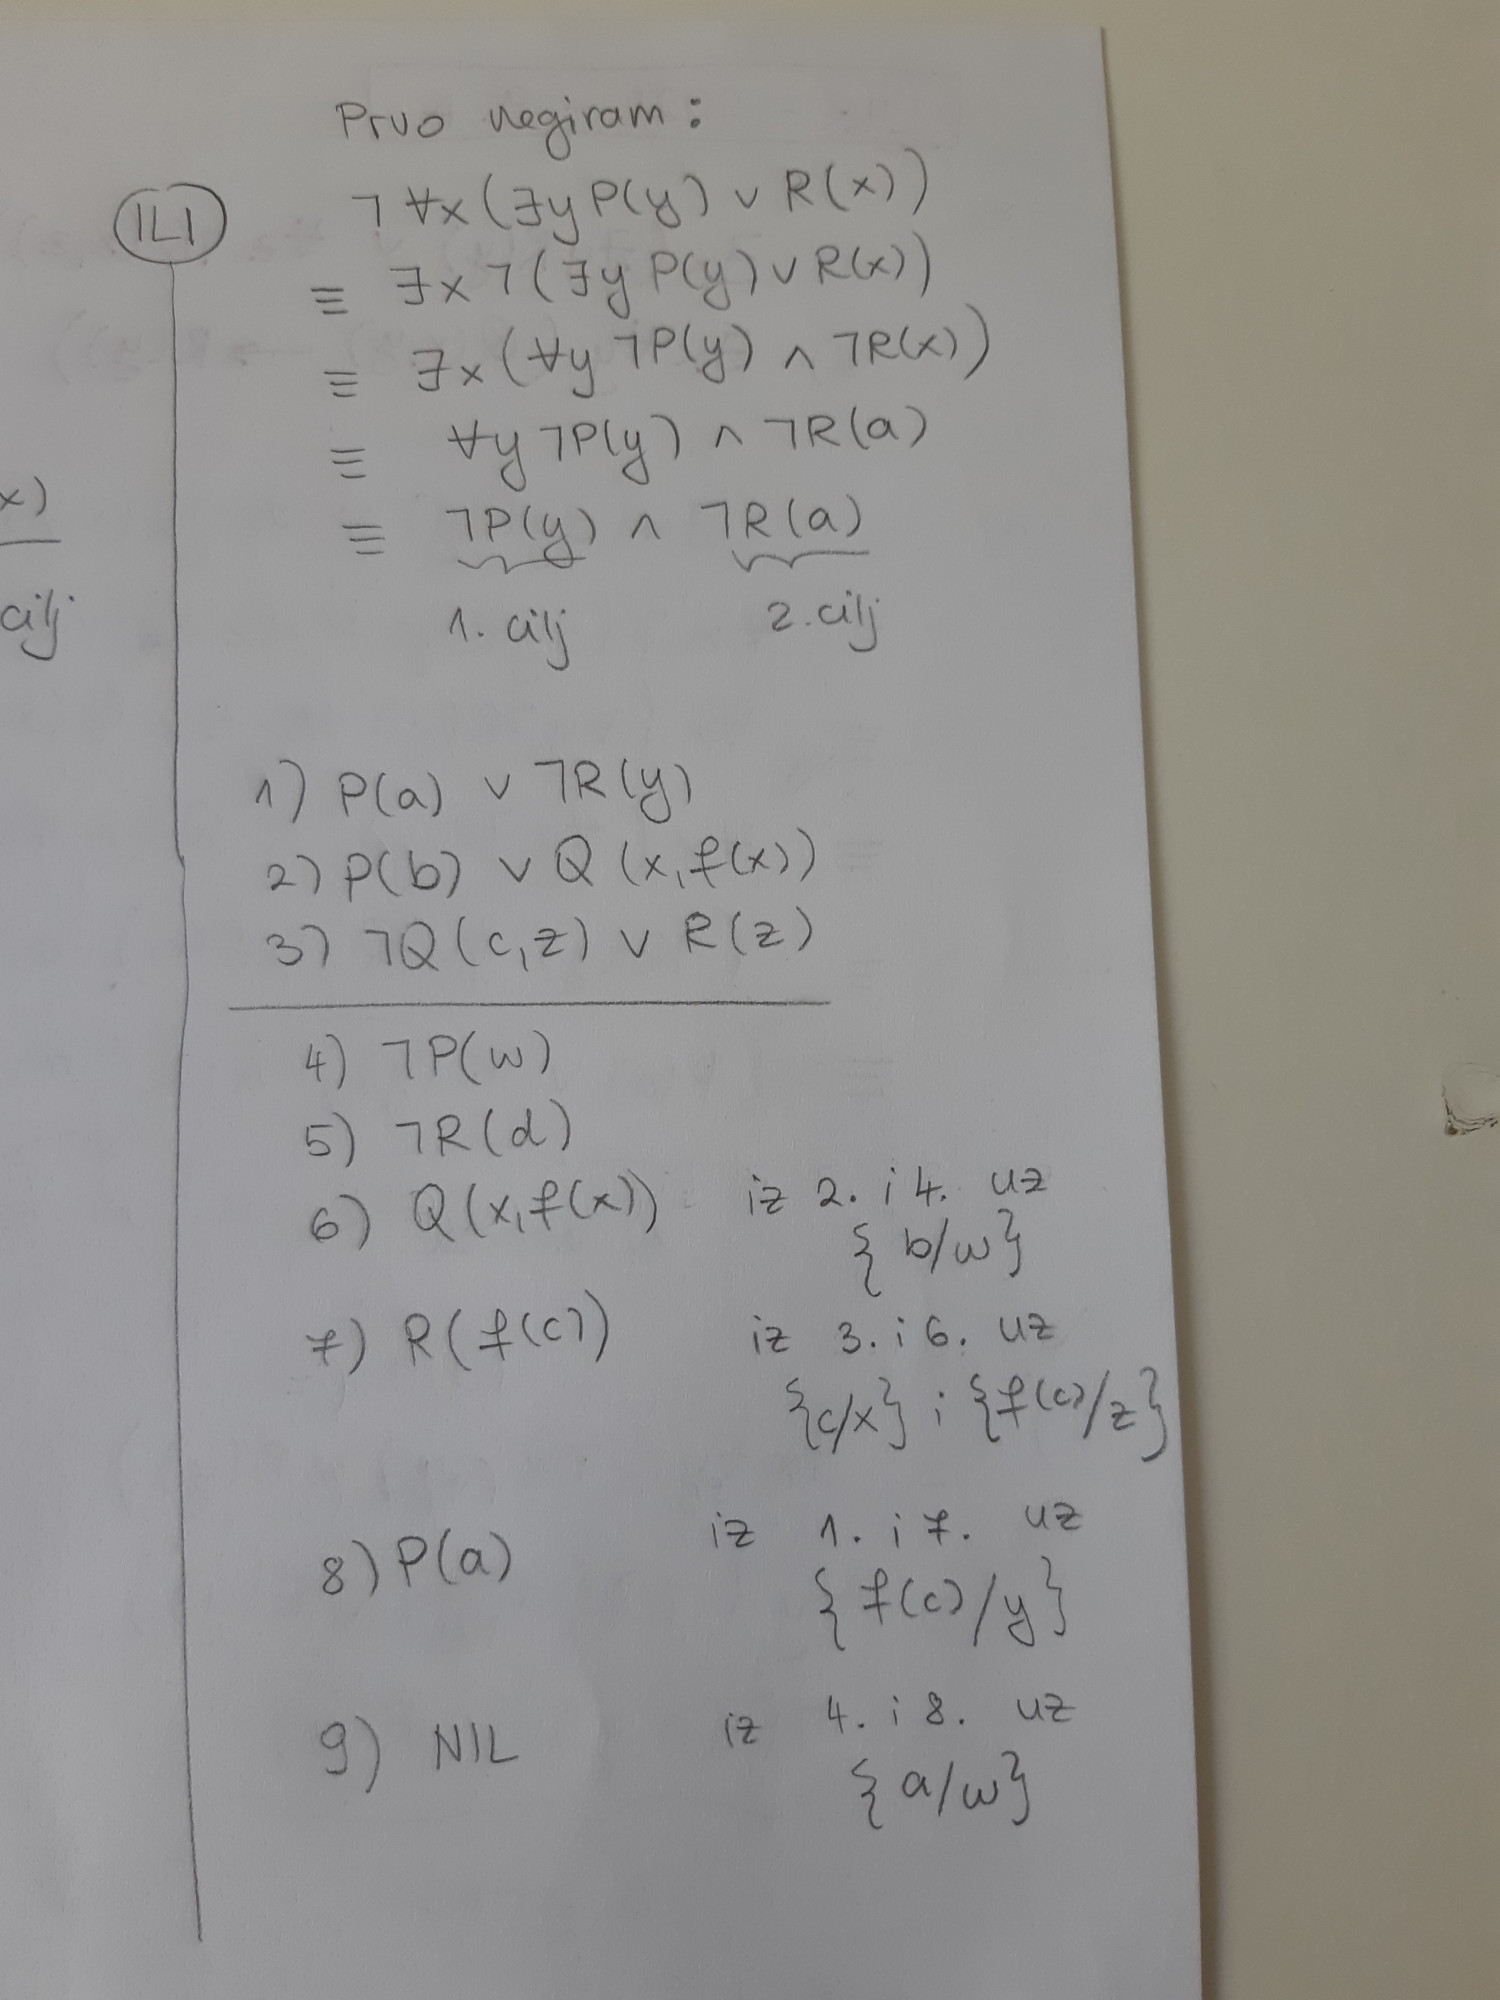 Prvo negiram:
ILI
¬∀x(∃y P(y) ∨ R(x))
≡ ∃x¬(∃y P(y) ∨ R(x))
≡ ∃x(∀y ¬P(y) ∧ ¬R(x))
≡ ∀y ¬P(y) ∧ ¬R(a)
x)
≡ ¬P(y) ∧ ¬R(a)
cilj
1. cilj 2. cilj
1) P(a) ∨ ¬R(y)
2) P(b) ∨ Q(x,f(x))
3) ¬Q(c,z) ∨ R(z)
4) ¬P(w)
5) ¬R(d)
6) Q(x,f(x)) iz 2. i 4. uz
{b/w}
7) R(f(c)) iz 3. i 6. uz
{c/x} i {f(c)/z}
8) P(a) iz 1. i 7. uz
{f(c)/y}
9) NIL iz 4. i 8. uz
{a/w}